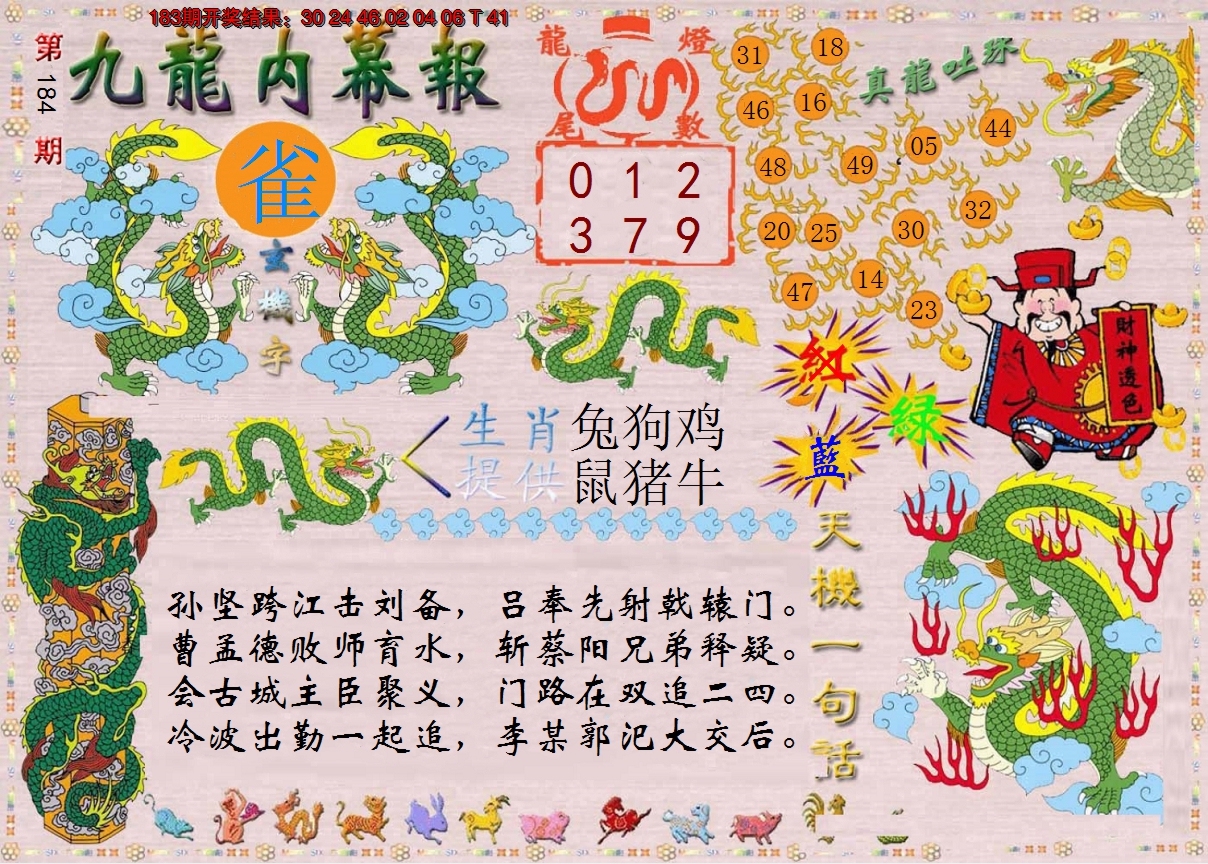 183期开奖结果：30 24 46 02 04 06 T 41
第184期
九龍内幕報
雀
玄機字
龍燈
尾數
0 1 2
3 7 9
真龍吐珠
31 18
46 16
48 49 05 44
20 25 30 32
47 14 23
財神透色
紅
綠
藍
生肖 兔狗鸡
提供 鼠猪牛
天機一句話
孙坚跨江击刘备，吕奉先射戟辕门。
曹孟德败师育水，斩蔡阳兄弟释疑。
会古城主臣聚义，门路在双追二四。
冷波出勤一起追，李某郭汜大交后。